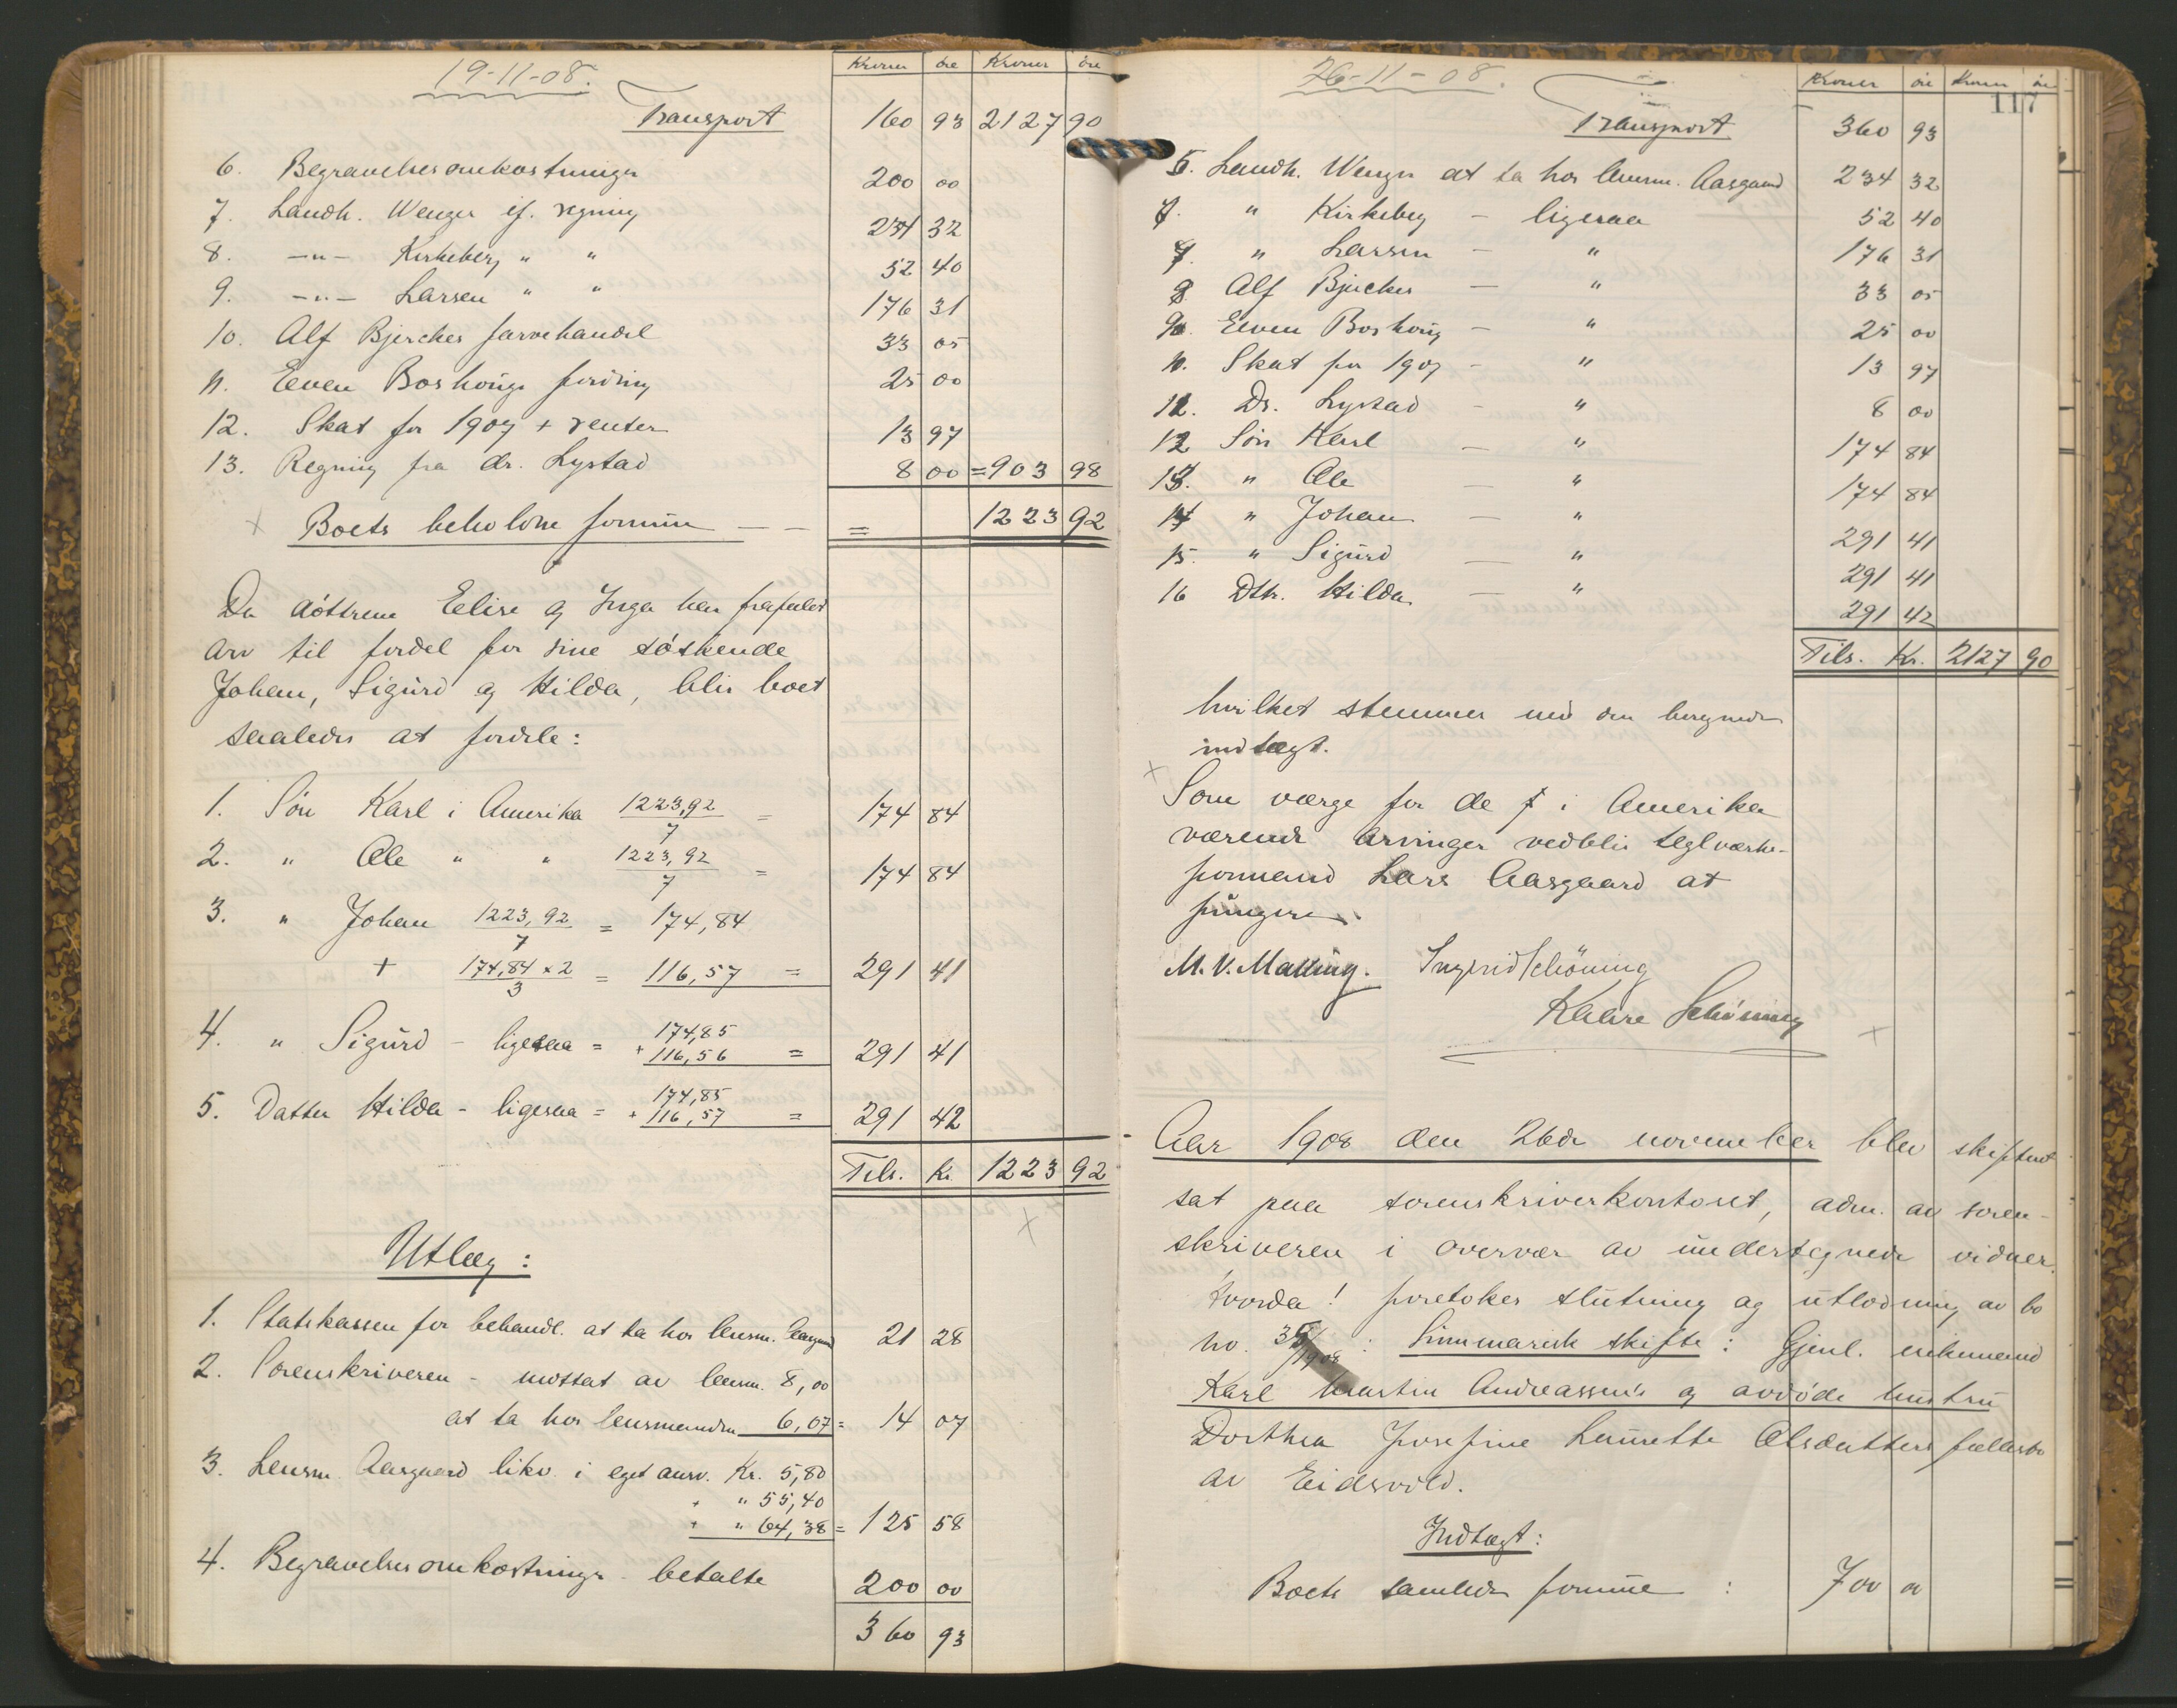 19-11-08.
Kroner øre Kroner øre
Transport 160 93 2127 90
6. Begravelsesomkostninger 200 00
7. Landh. Wenger ef. regning 234 32
8. -"- Kirkeberg " " 52 40
9. -"- Larsen " " 176 31
10. Alf Bjerckes farvehandel 33 05
11. Even Boshougs fordring 25 00
12. Skat for 1907 + renter 13 97
13. Regning fra dr. Lystad 8 00 = 903 98
Boets beholdne formue — — = 1223 92
Da døttrene Elise og Inga har frafaldt
arv til fordel for sine søskende
Johan, Sigurd og Hilda, blir boet
saaledes at fordele:
1. Søn Karl i Amerika 1223,92/7 = 174 84
2. " Ole " " 1223,92/7 = 174 84
3. " Johan 1223,92/7 = 174,84
+ 174,84 x 2/3 = 116,57 = 291 41
4. " Sigurd - ligesaa = 174,85
+ 116,56 = 291 41
5. Datter Hilda - ligesaa = 174,85
+ 116,57 = 291 42
Tils. Kr. 1223 92
Utlæg:
1. Statskassen for behandl. at ta hos lensm. Aasgaard 21 28
2. Sorenskriveren - mottat av lensm. 8,00
at ta hos lensmanden 6,07 = 14 07
3. Lensm. Aasgaard likv. i eget ansv. Kr. 5,80
+ " 55,40
+ " 64,38 = 125 58
4. Begravelsesomkostninger - betalte 200 00
360 93
26-11-08.
Kroner øre Kroner øre
117
Transport 360 93
5. Landh. Wenger at ta hos lensm. Aasgaard 234 32
6. " Kirkeberg - ligesaa 52 40
7. " Larsen - " 176 31
8 Alf Bjercke - " 33 05
9. Even Boshoug - " 25 00
10. Skat for 1907 - " 13 97
11. Dr. Lystad - " 8 00
12 Søn Karl - " 174 84
13. " Ole - " 174 84
14 " Johan - " 291 41
15. " Sigurd - " 291 41
16 Dtr. Hilda - " 291 42
Tils. Kr. 2127 90
hvilket stemmer med den beregnede
indtægt.
Som værge for de i Amerika
værende arvinger vedblir teglverks-
formand Lars Aasgaard at
fungere.
M. V. Malling. Ingrid Schöning
Kaare Schöning
Aar 1908 den 26de november blev skifteret
sat paa sorenskriverkontoret, adm. av soren-
skriveren i overvær av undertegnede vidner.
Hvorda! foretokes slutning og utlodning av bo
no. /1908: Summarisk skifte: Gjenl. enkemand
Karl Martin Andreassen's og avdøde hustru
Dorthea Josefine Laurette Olsdatters fællesbo
av Eidsvold.
Indtægt:
Boets samlede formue : 700 00